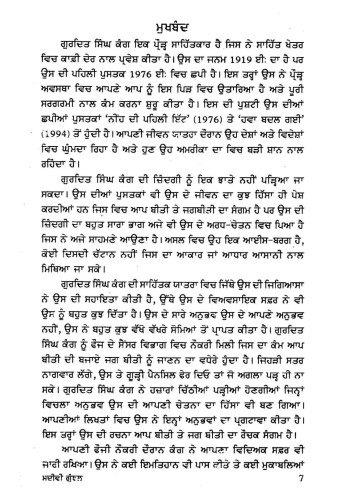 ਮੁਖਬੰਦ
ਗੁਰਦਿਤ ਸਿੰਘ ਕੰਗ ਇਕ ਪ੍ਰੌੜ੍ਹ ਸਾਹਿੱਤਕਾਰ ਹੈ ਜਿਸ ਨੇ ਸਾਹਿੱਤ ਖੇਤਰ
ਵਿਚ ਕਾਫ਼ੀ ਦੇਰ ਨਾਲ ਪ੍ਰਵੇਸ਼ ਕੀਤਾ ਹੈ। ਉਸ ਦਾ ਜਨਮ 1919 ਈ: ਦਾ ਹੈ ਪਰ
ਉਸ ਦੀ ਪਹਿਲੀ ਪੁਸਤਕ 1976 ਈ: ਵਿਚ ਛਪੀ ਹੈ। ਇਸ ਤਰ੍ਹਾਂ ਉਸ ਨੇ ਪ੍ਰੌੜ੍ਹ
ਅਵਸਥਾ ਵਿਚ ਆਪਣੇ ਆਪ ਨੂੰ ਇਸ ਪਿੜ ਵਿਚ ਉਤਾਰਿਆ ਹੈ ਅਤੇ ਪੂਰੀ
ਸਰਗਰਮੀ ਨਾਲ ਕੰਮ ਕਰਨਾ ਸ਼ੁਰੂ ਕੀਤਾ ਹੈ। ਇਸ ਦੀ ਪੁਸ਼ਟੀ ਉਸ ਦੀਆਂ
ਛਪੀਆਂ ਪੁਸਤਕਾਂ 'ਨੀਂਹ ਦੀ ਪਹਿਲੀ ਇੱਟ' (1976) ਤੋਂ 'ਹਵਾ ਬਦਲ ਗਈ'
(1994) ਤੋਂ ਹੁੰਦੀ ਹੈ। ਆਪਣੀ ਜੀਵਨ ਯਾਤਰਾ ਦੌਰਾਨ ਉਹ ਦੇਸ਼ਾਂ ਅਤੇ ਵਿਦੇਸ਼ਾਂ
ਵਿਚ ਘੁੰਮਦਾ ਰਿਹਾ ਹੈ ਅਤੇ ਹੁਣ ਉਹ ਅਮਰੀਕਾ ਦਾ ਵਿਚ ਬੜੀ ਸ਼ਾਨ ਨਾਲ
ਰਹਿੰਦਾ ਹੈ।
ਗੁਰਦਿਤ ਸਿੰਘ ਕੰਗ ਦੀ ਜ਼ਿੰਦਗੀ ਨੂੰ ਇਕ ਝਾਤੇ ਨਹੀਂ ਪੜ੍ਹਿਆ ਜਾ
ਸਕਦਾ। ਉਸ ਦੀਆਂ ਪੁਸਤਕਾਂ ਵੀ ਉਸ ਦੇ ਜੀਵਨ ਦਾ ਕੁਝ ਹਿੱਸਾ ਹੀ ਪੇਸ਼
ਕਰਦੀਆਂ ਹਨ ਜਿਸ ਵਿਚ ਆਪ ਬੀਤੀ ਤੇ ਜਗਬੀਤੀ ਦਾ ਸੰਗਮ ਹੈ ਪਰ ਉਸ ਦੀ
ਜ਼ਿੰਦਗੀ ਦਾ ਬਹੁਤ ਸਾਰਾ ਭਾਗ ਅਜੇ ਵੀ ਉਸ ਦੇ ਅਰਧ-ਚੇਤਨ ਵਿਚ ਪਿਆ ਹੈ
ਜਿਸ ਨੇ ਅਜੇ ਸਾਹਮਣੇ ਆਉਣਾ ਹੈ। ਅਸਲ ਵਿਚ ਉਹ ਇਕ ਆਈਸ-ਬਰਗ ਹੈ,
ਕੋਈ ਦਿਸਦੀ ਚੱਟਾਨ ਨਹੀਂ ਜਿਸ ਦਾ ਆਕਾਰ ਜਾਂ ਆਧਾਰ ਆਸਾਨੀ ਨਾਲ
ਮਿਥਿਆ ਜਾ ਸਕੇ।
ਗੁਰਦਿਤ ਸਿੰਘ ਕੰਗ ਦੀ ਸਾਹਿੱਤਕ ਯਾਤਰਾ ਵਿਚ ਜਿੱਥੇ ਉਸ ਦੀ ਜਿਗਿਆਸਾ
ਨੇ ਉਸ ਦੀ ਸਹਾਇਤਾ ਕੀਤੀ ਹੈ, ਉੱਥੇ ਉਸ ਦੇ ਵਿਅਵਸਾਇਕ ਸਫ਼ਰ ਨੇ ਵੀ
ਉਸ ਨੂੰ ਬਹੁਤ ਕੁਝ ਦਿੱਤਾ ਹੈ। ਉਸ ਦੇ ਸਾਰੇ ਅਨੁਭਵ ਉਸ ਦੇ ਆਪਣੇ ਅਨੁਭਵ
ਨਹੀਂ, ਉਸ ਨੇ ਬਹੁਤ ਕੁਝ ਵੱਖੋ ਵੱਖਰੇ ਸੋਮਿਆਂ ਤੋਂ ਪ੍ਰਾਪਤ ਕੀਤਾ ਹੈ। ਗੁਰਦਿਤ
ਸਿੰਘ ਕੰਗ ਨੂੰ ਫੌਜ ਦੇ ਸੈਂਸਰ ਵਿਭਾਗ ਵਿਚ ਨੌਕਰੀ ਮਿਲੀ ਜਿਸ ਦਾ ਕੰਮ ਆਪ
ਬੀਤੀ ਦੀ ਬਜਾਏ ਜਗ ਬੀਤੀ ਨੂੰ ਜਾਣਨ ਦਾ ਵਧੇਰੇ ਹੁੰਦਾ ਹੈ। ਜਿਹੜੀ ਸਤਰ
ਨਾਗਵਾਰ ਲੱਗੇ, ਉਸ ਤੇ ਗੂੜ੍ਹੀ ਪੈਨਸਿਲ ਫੇਰ ਦਿਓ ਤਾਂ ਜੋ ਅਗਲਾ ਪੜ੍ਹ ਹੀ ਨਾ
ਸਕੇ। ਗੁਰਦਿਤ ਸਿੰਘ ਕੰਗ ਨੇ ਹਜ਼ਾਰਾਂ ਚਿੱਠੀਆਂ ਪੜ੍ਹੀਆਂ ਹੋਣਗੀਆਂ ਜਿਨ੍ਹਾਂ
ਵਿਚਲਾ ਅਨੁਭਵ ਉਸ ਦੀ ਆਪਣੀ ਚੇਤਨਾ ਦਾ ਹਿੱਸਾ ਵੀ ਬਣ ਗਿਆ।
ਆਪਣੀਆਂ ਲਿਖਤਾਂ ਵਿਚ ਉਸ ਨੇ ਇਨ੍ਹਾਂ ਅਨੁਭਵਾਂ ਦਾ ਪ੍ਰਗਟਾਵਾ ਕੀਤਾ ਹੈ।
ਇਸ ਤਰ੍ਹਾਂ ਉਸ ਦੀ ਰਚਨਾ ਆਪ ਬੀਤੀ ਤੇ ਜਗ ਬੀਤੀ ਦਾ ਰੌਚਕ ਸੰਗਮ ਹੈ।
ਆਪਣੀ ਫੌਜੀ ਨੌਕਰੀ ਦੌਰਾਨ ਕੰਗ ਨੇ ਆਪਣਾ ਵਿਦਿਅਕ ਸਫ਼ਰ ਵੀ
ਜਾਰੀ ਰਖਿਆ। ਉਸ ਨੇ ਕਈ ਇਮਤਿਹਾਨ ਵੀ ਪਾਸ ਕੀਤੇ ਤੇ ਕਈ ਮੁਕਾਬਲਿਆਂ
7